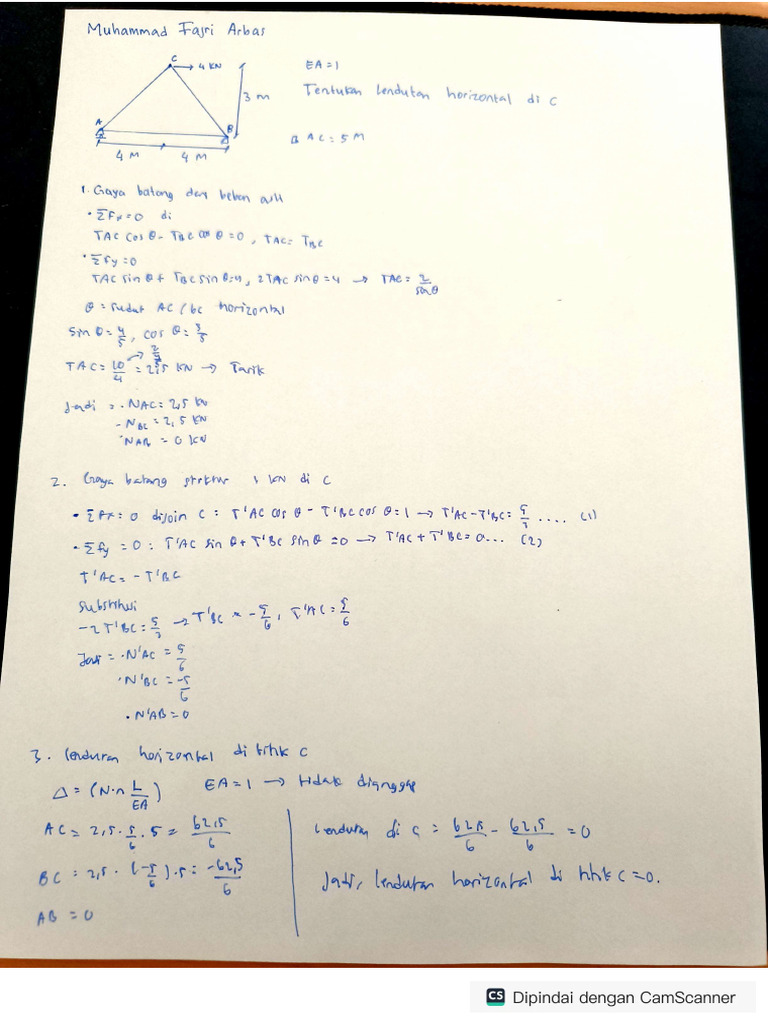 Muhammad Fajri Arbas
C
4 KN
EA = 1
3 m
Tentukan lendutan horizontal di C
A
B
B AC = 5 M
4 M
4 M
1. Gaya batang dari beban asli
• ΣFx = 0 di
TAC cos θ - TBC cos θ = 0, TAC = TBC
• ΣFy = 0
TAC sin θ + TBC sin θ = 4, 2TAC sin θ = 4 → TAC = 2/sin θ
θ = sudut AC / BC horizontal
sin θ = 4/5, cos θ = 3/5
TAC = 10/4 = 2,5 KN → Tarik
Jadi = • NAC = 2,5 KN
- NBC = 2,5 KN
• NAB = 0 KN
2. Gaya batang struktur 1 KN di C
• ΣFx = 0 dijoin C = T'AC cos θ - T'BC cos θ = 1 → T'AC - T'BC = 5/3 .... (1)
• ΣFy = 0 : T'AC sin θ + T'BC sin θ = 0 → T'AC + T'BC = 0... (2)
T'AC = - T'BC
Substitusi
-2 T'BC = 5/3 → T'BC = -5/6, T'AC = 5/6
Jadi = • N'AC = 5/6
• N'BC = -5/6
• N'AB = 0
3. lendutan horizontal di titik C
Δ = (N·n L/EA) EA = 1 → tidak dianggap
AC = 2,5 · 5/6 · 5 = 62,5/6
BC = 2,5 · (-5/6) · 5 = -62,5/6
AB = 0
Lendutan di C = 62,5/6 - 62,5/6 = 0
Jadi, lendutan horizontal di titik C = 0.
CS Dipindai dengan CamScanner